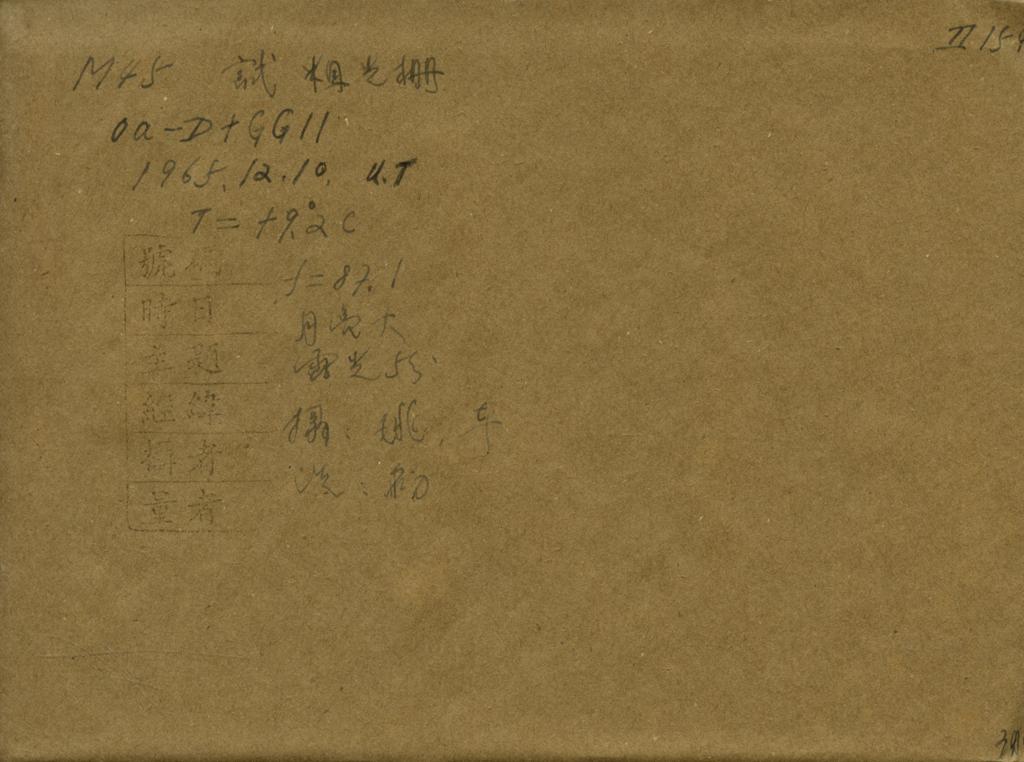 II 159
M45 試粗光柵
0a-D+GG11
1965.12.10. U.T
T=+9.°2 C
號碼
f=87.1
時日
月亮大
主題
露光5分
經緯
攝: 姚,
攝者
洗:
量者